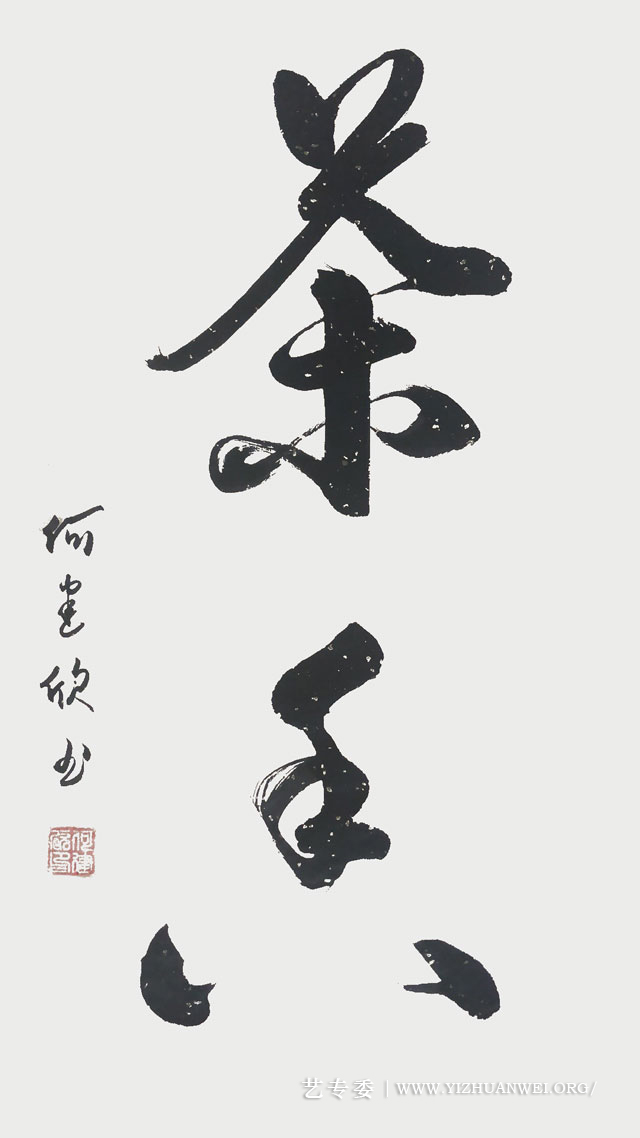 茶
何建欣书
艺专委 | WWW.YIZHUANWEI.ORG/